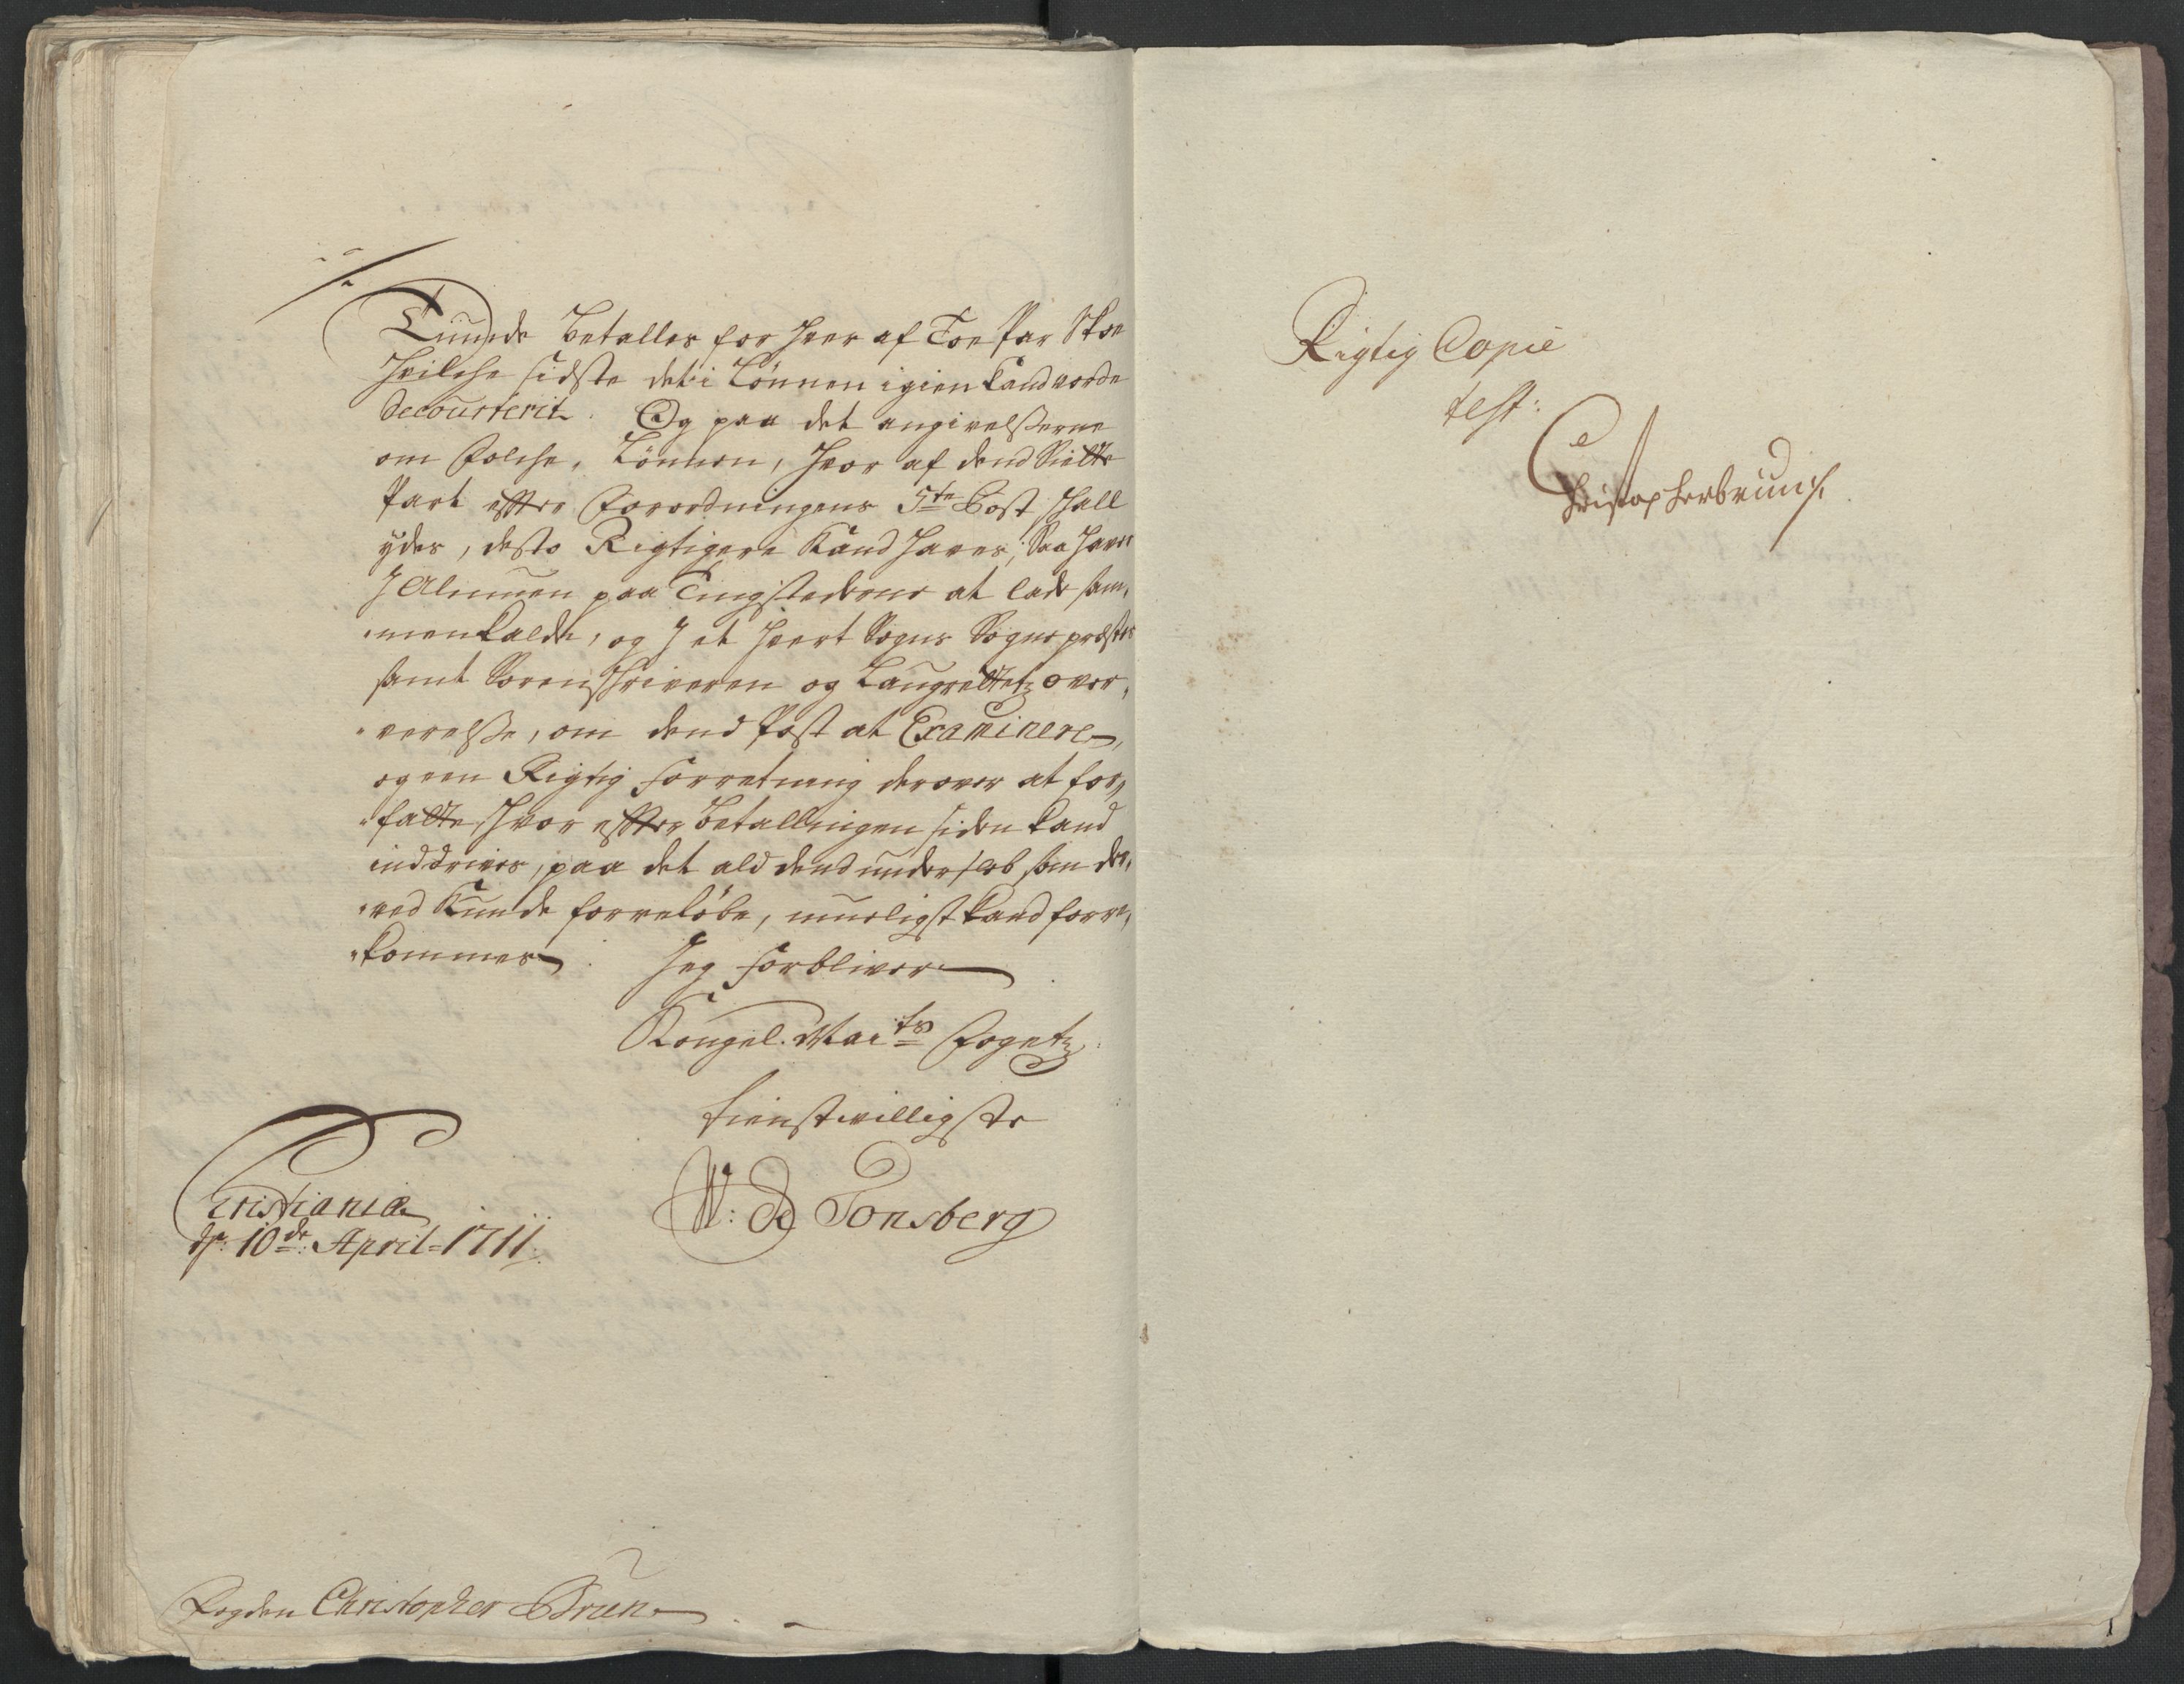 Qunde betaller for hver af Toe Par Skoe
hvilche sidste det i Lønnen igien Kand vorde
Decourterit. Og paa det angivelsserne
om Folche Lønnen, hvor af dend Siette
Part effter Forordningens 5te Post schall
ydes, desto Rigtigere Kand haves, Saa haver
I Almuen paa Tingstederne at lade sam„
„menkalde, og I et hvert Sogns Sogneprestes
samt Sorenschriverens og Laugrettetz over„
„verelsse, om dend Post at Examinere,
og een Rigtig Forretning derover at for„
„fatte, hvor effter betallingen siden kand
inddrives, paa det ald dend underslæb som der„
„ved Kunde forreløbe, mueligst kand forre„
„kommes. Jeg Forbliver
Kongel. Maits Fogetz
tienstvilligste
Christiania W: de Tonsberg
d. 10de: April 1711.
Fogden Christopher Brun
Rigtig Copie
test:
Christopher brun